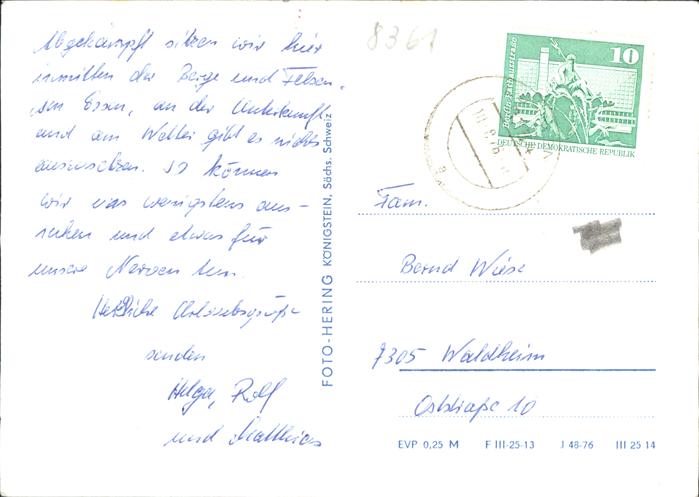 Abgekämpft sitzen wir hier
inmitten der Berge und Felsen.
Am Essen, an der Unterkunft
und am Wetter gibt es nichts
auszusetzen. So können
wir uns wenigstens aus-
ruhen und etwas für
unsere Nerven tun.
Herzliche Urlaubsgrüße
senden
Helga, Rolf
und Matthias
8361
10
DEUTSCHE DEMOKRATISCHE REPUBLIK
Fam.
Bernd Wiese
7305 Waldheim
Oststraße 10
FOTO-HERING KÖNIGSTEIN, Sächs. Schweiz
EVP 0,25 M F III-25-13 J 48-76 III 25 14